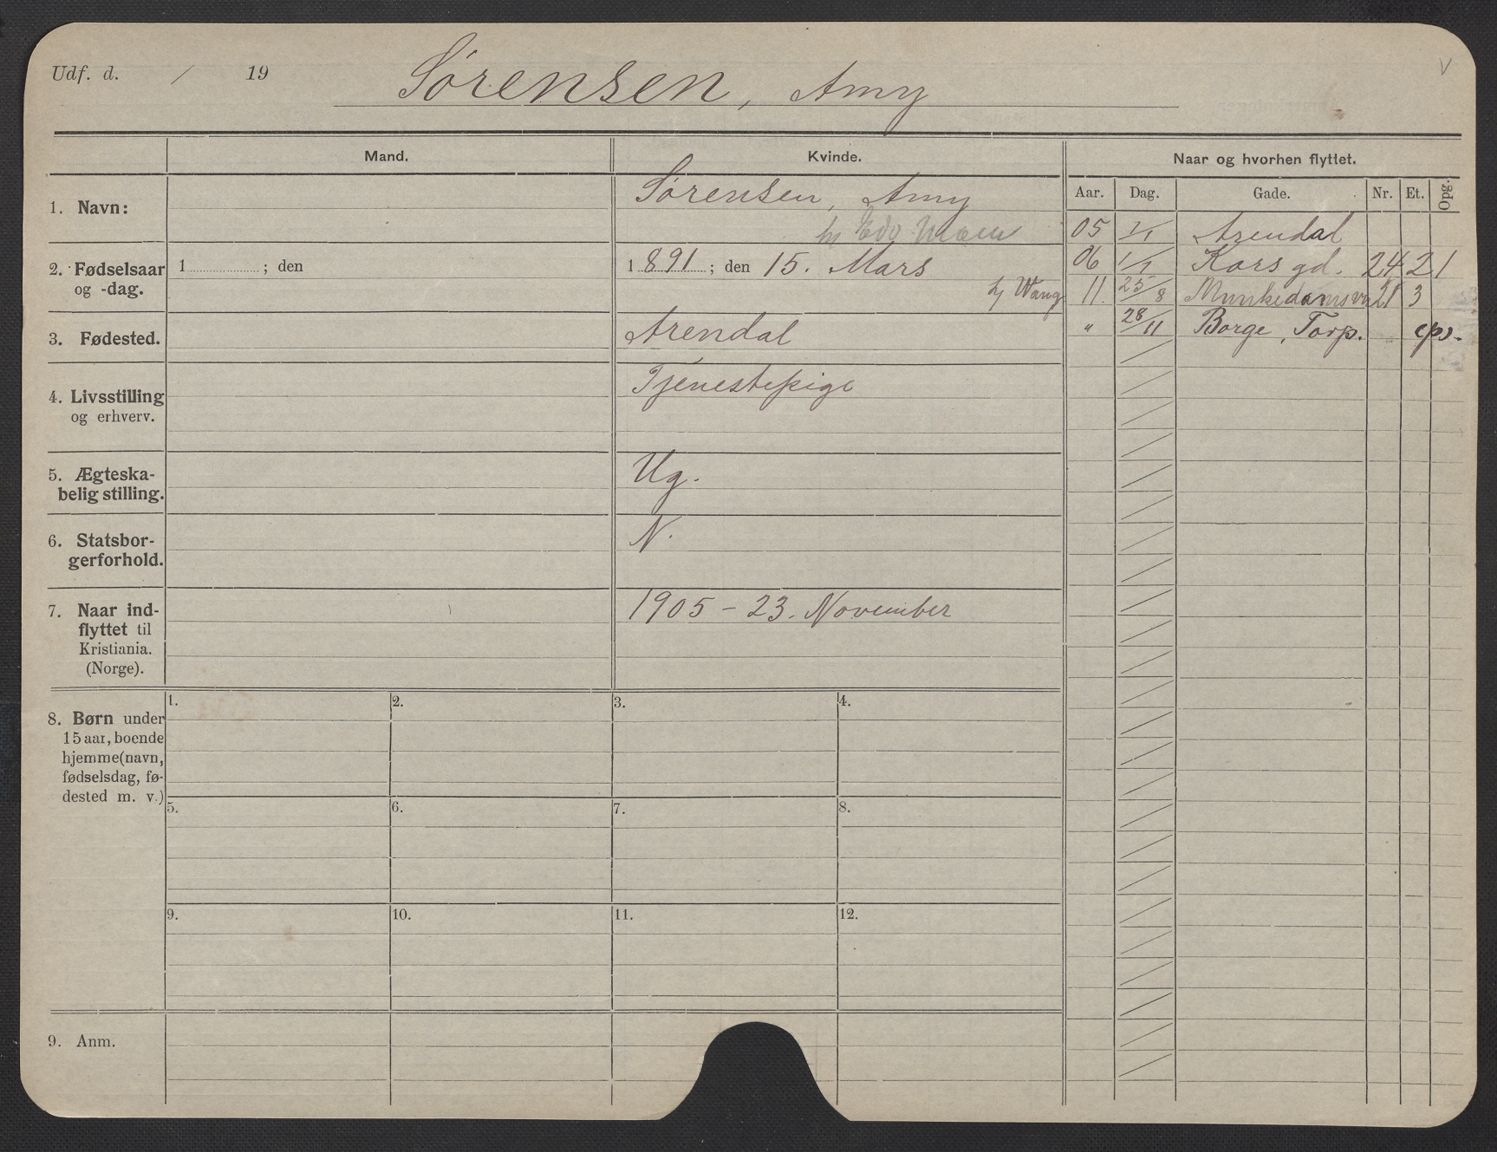 Udf. d. / 19 Sørensen, Amy
Mand. Kvinde. Naar og hvorhen flyttet.
Aar. Dag. Gade. Nr. Et. Opg.
1. Navn: Sørensen, Amy
hj Edv
2. Fødselsaar og -dag. 1 ; den
1891 ; den 15. Mars
hj Wang
3. Fødested. Arendal
4. Livsstilling og erhverv. Tjenestepige
5. Ægteska-
belig stilling. Ug.
6. Statsbor-
gerforhold. N.
7. Naar ind-
flyttet til
Kristiania.
(Norge).
1905 - 23. November
05 1/1 Arendal
06 1/1 Kors gd. 24 2 1
11. 25/8 Munkedamsvn 21 3
" 28/11 Borge, Torp. ps.
8. Børn under
15 aar, boende
hjemme (navn,
fødselsdag, fø-
dested m. v.)
1. 2. 3. 4.
5. 6. 7. 8.
9. 10. 11. 12.
9. Anm.